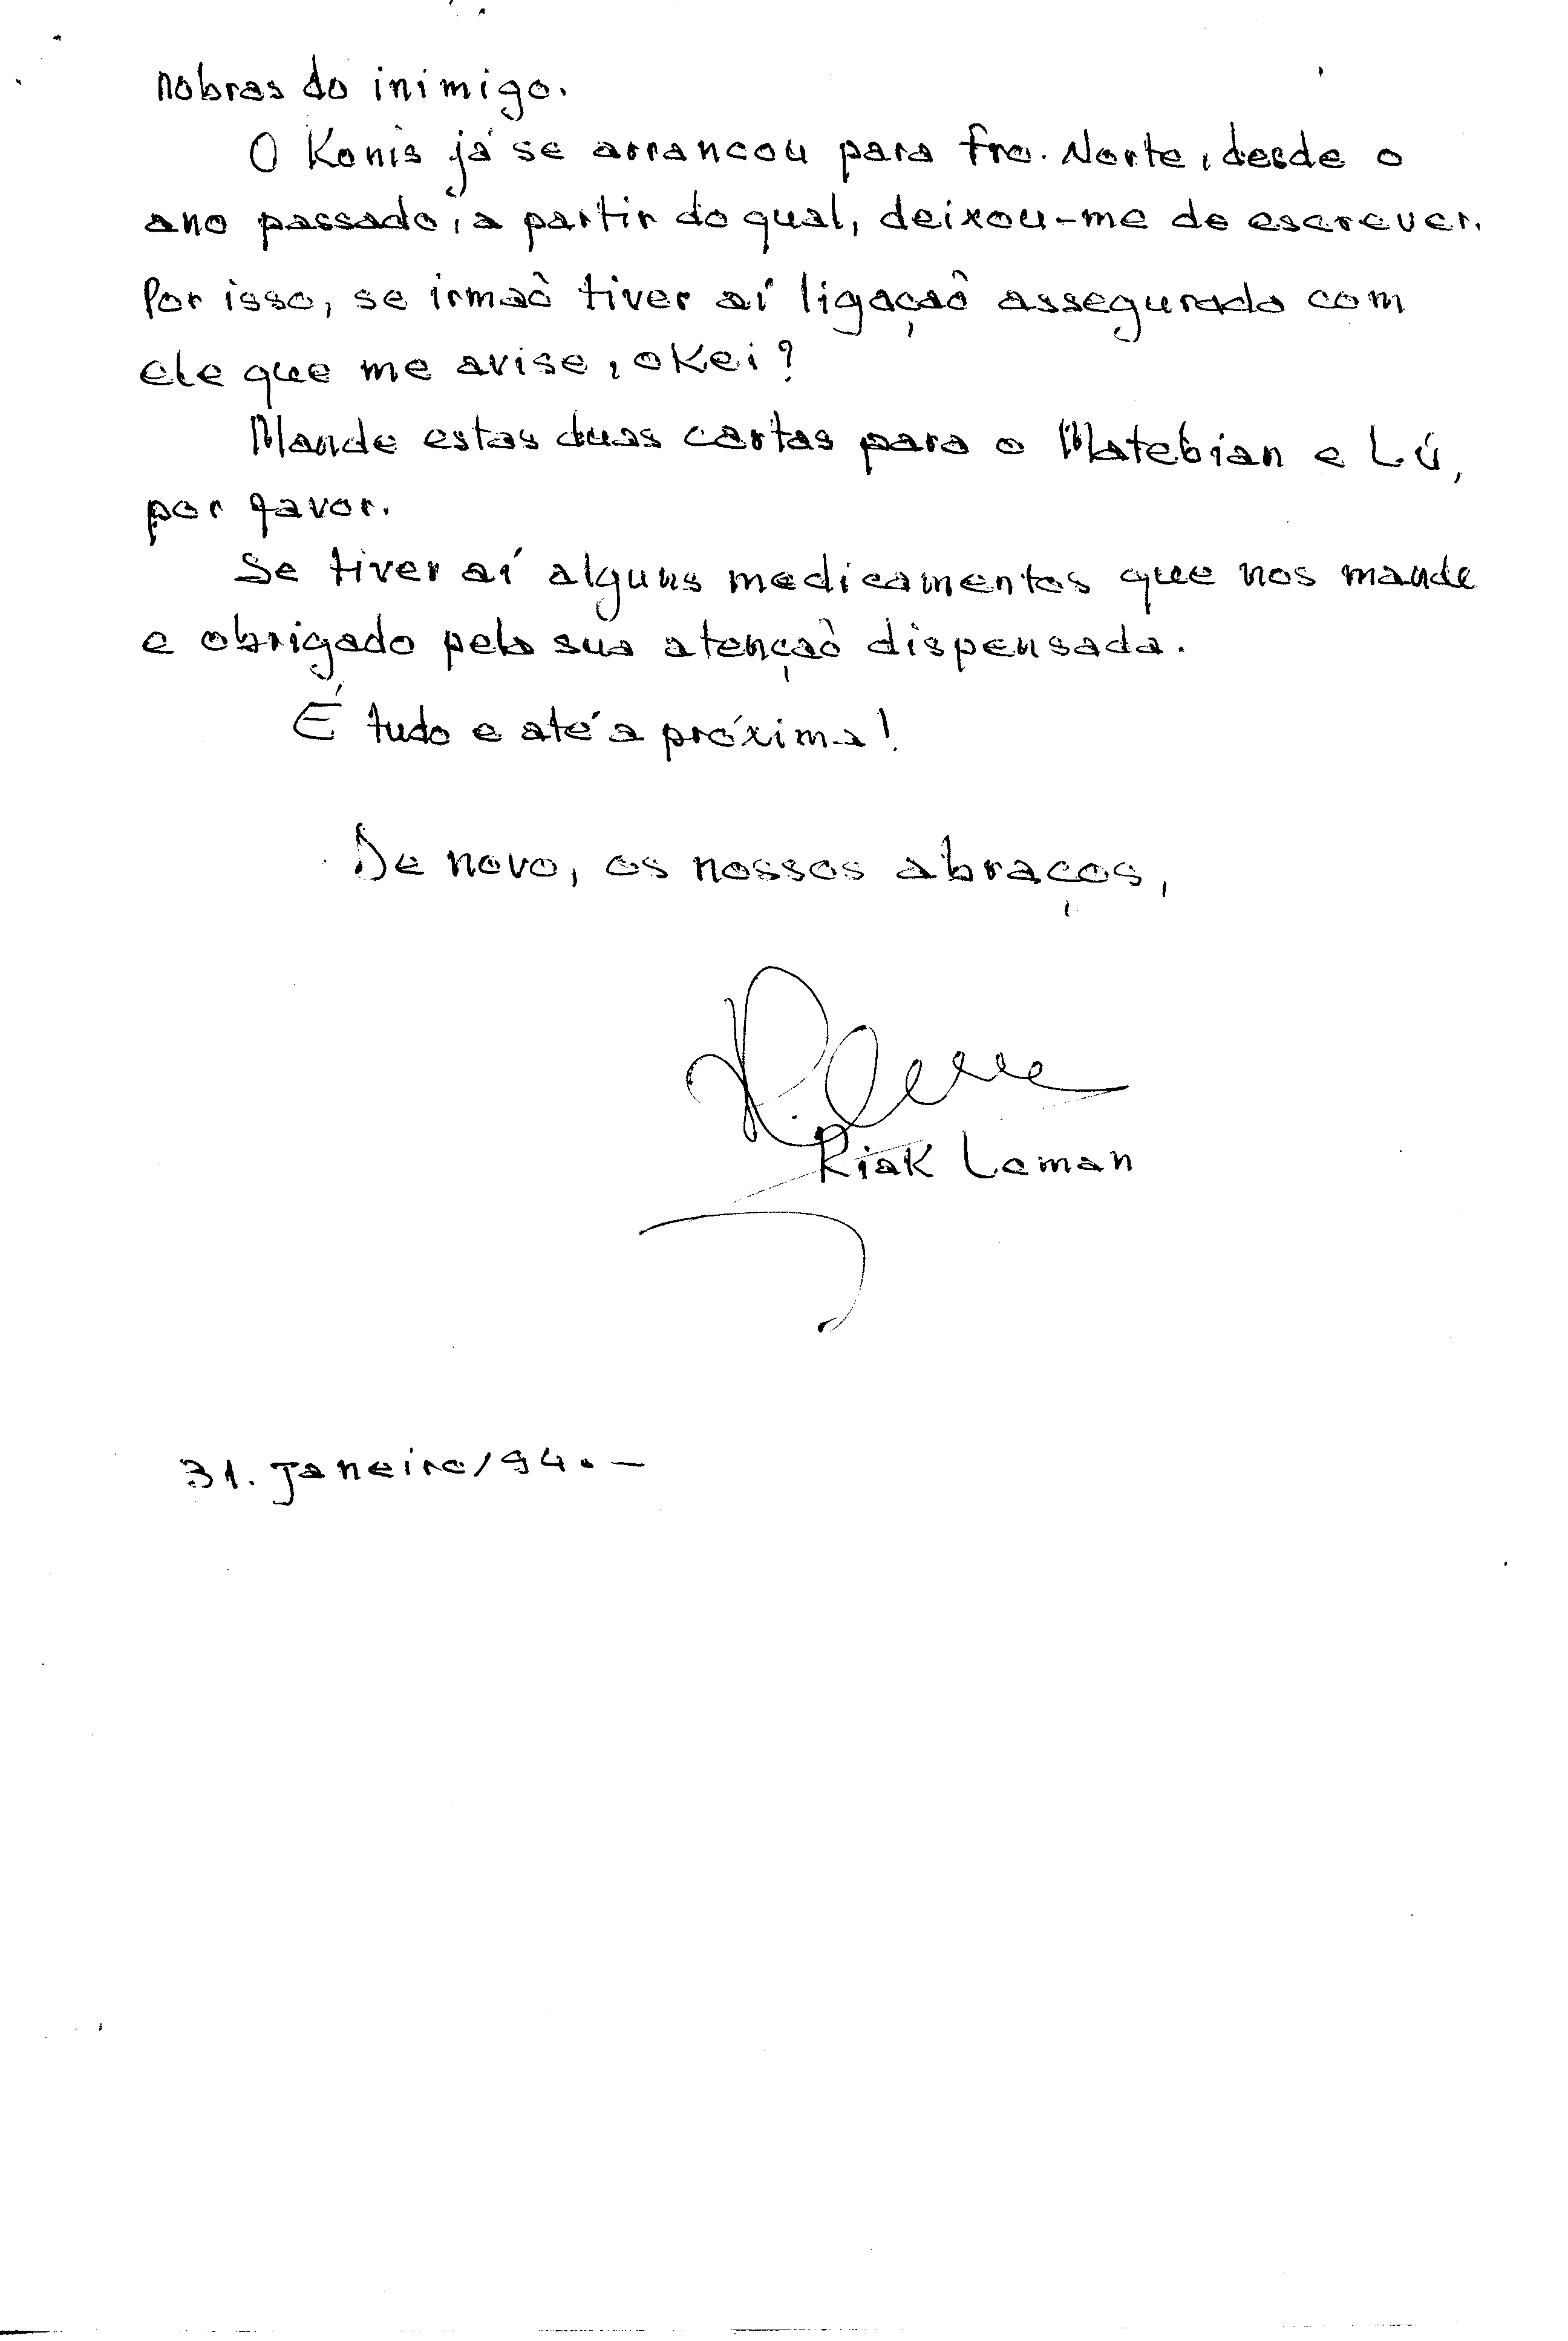 nobras do inimigo.
O Konis já se arrancou para fro. Norte, desde o
ano passado, a partir do qual, deixou-me de escrever.
Por isso, se irmaõ tiver aí ligaçaõ assegurado com
ele que me avise, okei?
Mande estas duas cartas para o Matebian e Lú,
por favor.
Se tiver aí alguns medicamentos que nos mande
e obrigado pela sua atençaõ dispensada.
É tudo e até a próxima!
De novo, os nossos abraços,
Riak Leman
31. Janeiro/94.-